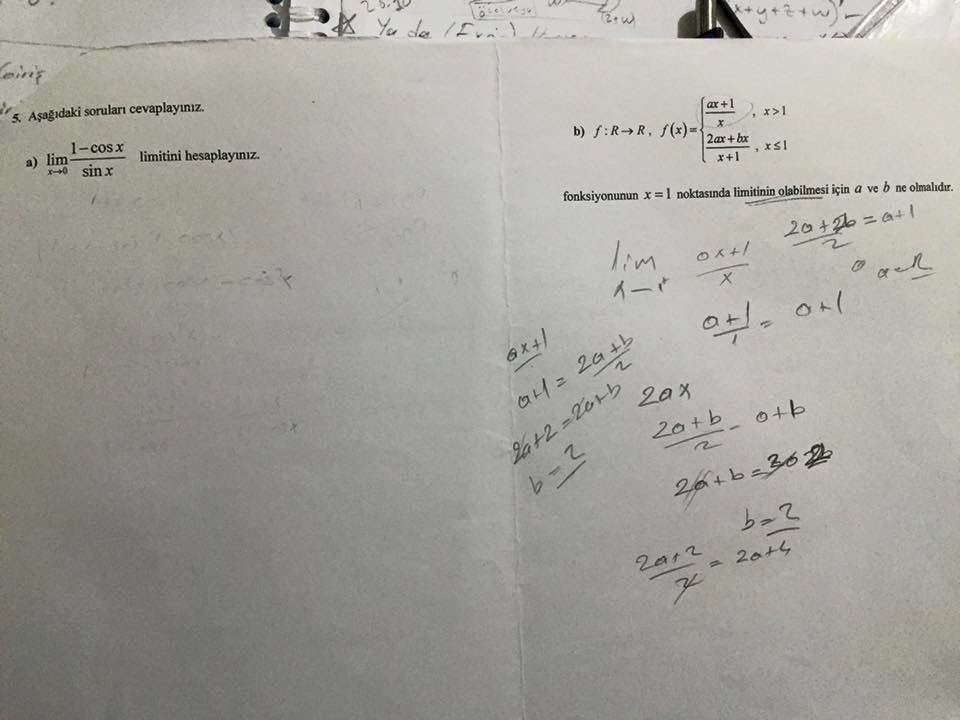 26.10
Ya da
x+y+z+w)
Giriş
5. Aşağıdaki soruları cevaplayınız.
a) lim x→0 (1−cos x)/(sin x) limitini hesaplayınız.
b) f : R → R , f(x) = { (ax+1)/x , x > 1
(2ax+bx)/(x+1) , x ≤ 1
fonksiyonunun x = 1 noktasında limitinin olabilmesi için a ve b ne olmalıdır.
lim (ax+1)/x
(a+1)/1 = a+1
ax+1
a+1 = (2a+b)/2
2a+2 = 2a+b
b = 2
2ax
(2a+b)/2 = a+b
b = 2
(2a+2)/2 = 2a+4